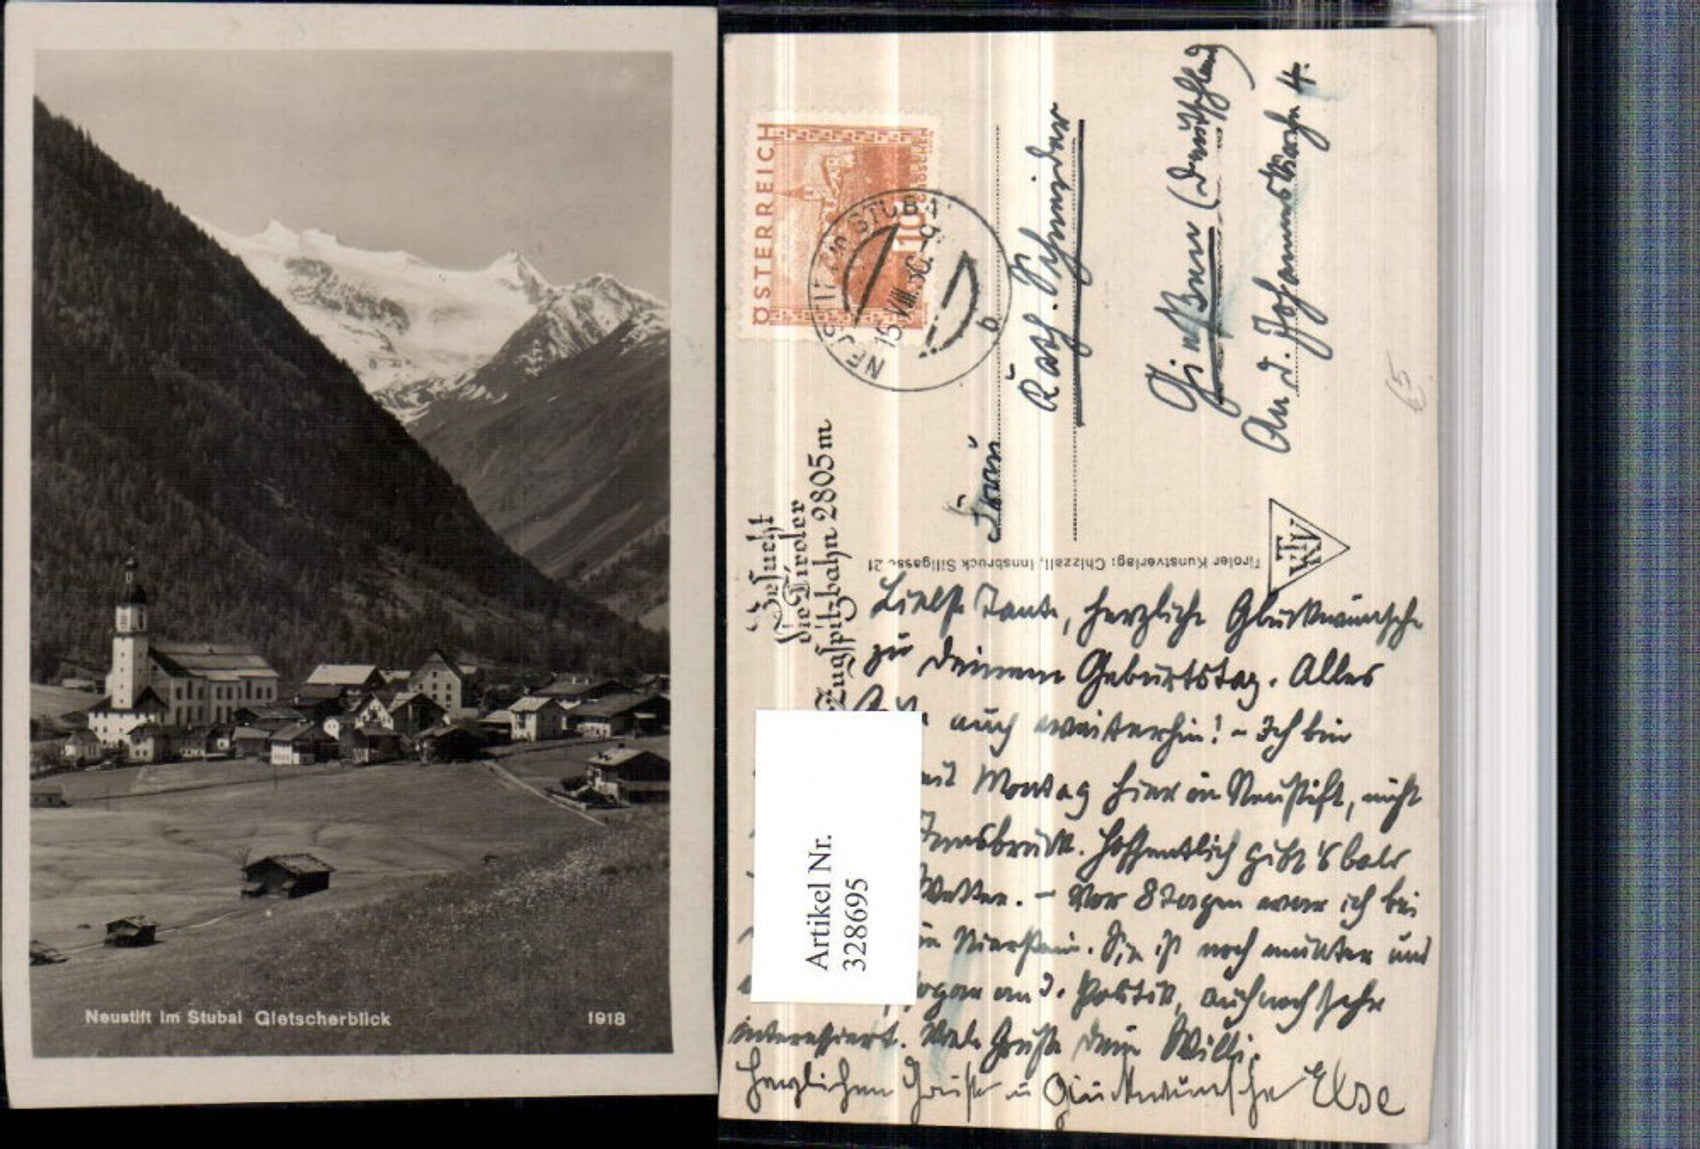 Neustift im Stubai Gletscherblick
1918
ÖSTERREICH
10
GROSCHEN
NEUSTIFT im STUBAI
15.VIII.30.-9
b
Besucht
die Tiroler
Zugspitzbahn 2805m
Frau
Kath. Schneider
Gießen (Deutschland)
An d. Johanneskirche 4.
Tiroler Kunstverlag: Chizzali, Innsbruck Sillgasse 21
TKV
Liebste Tante, herzliche Glückwünsche
zu Deinem Geburtstag. Alles
auch weiterhin! - Ich bin
seit Montag hier in Neustift, nicht
Innsbruck. Hoffentlich gibt's bald
Wetter. - Vor 8 Tagen war ich bei
in Nierstein. Sie ist noch munter und
sogar an d. Politik, auch noch sehr
interessiert. Viele Grüße Dein Willi.
Herzlichen Gruß u Glückwünsche Else
Artikel Nr.
328695